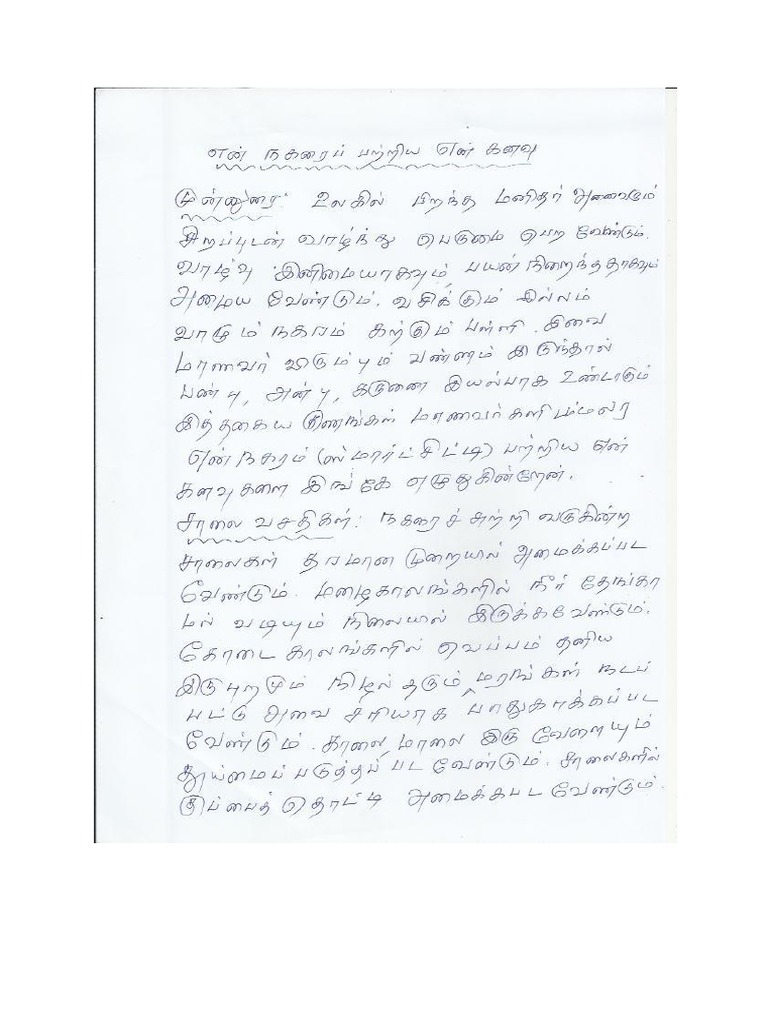 என் நகரைப் பற்றிய என் கனவு
முன்னுரை: உலகில் பிறந்த மனிதர் அனைவரும்
சிறப்புடன் வாழ்ந்து பெருமை பெற வேண்டும்.
வாழ்வு இனிமையாகவும், பயன் நிறைந்ததாகவும்
அமைய வேண்டும். வசிக்கும் இல்லம்
வாழும் நகரம் கற்கும் பள்ளி. இவை
மாணவர் விரும்பும் வண்ணம் இருந்தால்
பண்பு, அன்பு, கருணை இயல்பாக உண்டாகும்
இத்தகைய குணங்கள் மாணவர்களிடம் மலர
என் நகரம் (ஸ்மார்ட் சிட்டி) பற்றிய என்
கனவுகளை இங்கே எழுதுகின்றேன்.
சாலை வசதிகள்: நகரைச் சுற்றி வருகின்ற
சாலைகள் தரமான முறையில் அமைக்கப்பட
வேண்டும். மழைகாலங்களில் நீர் தேங்கா
மல் வடியும் நிலையில் இருக்கவேண்டும்.
கோடை காலங்களில் வெப்பம் தணிய
இருபுறமும் நிழல் தரும் மரங்கள் நடப்
பட்டு அவை சரியாக பாதுகாக்கப்பட
வேண்டும். காலை, மாலை இரு வேளையும்
தூய்மைப் படுத்தப் பட வேண்டும். சாலைகளில்
குப்பைத் தொட்டி அமைக்கபட வேண்டும்.